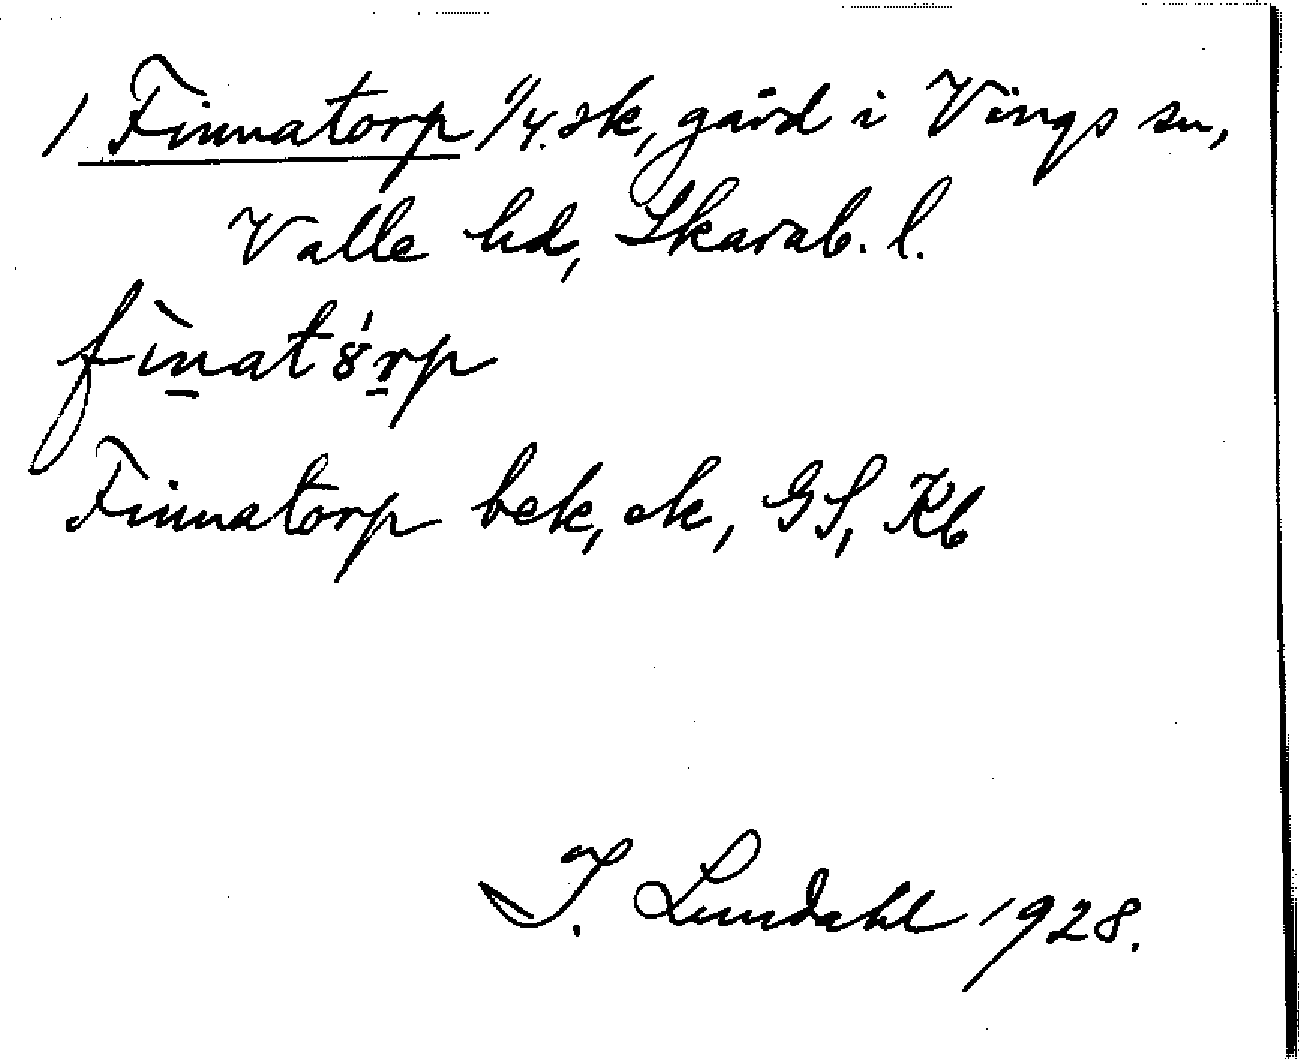 1 Finnatorp 1/4. sk, gård i Vings sn,
Valle hd, Skarab. l.
fìnat8́rp
Finnatorp bek, ek, GS, Kb
I. Lundahl 1928.